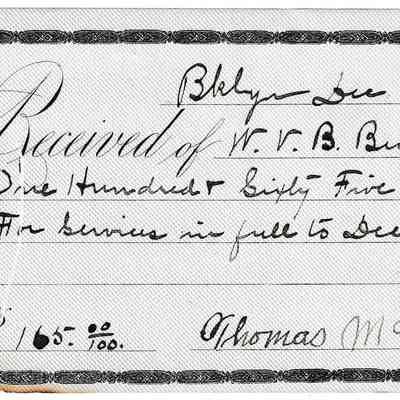 Bklyn Dec
Received of W. V. B.
One Hundred & Sixty Five
For Services in full to Dec
165. 00/100.
Thomas